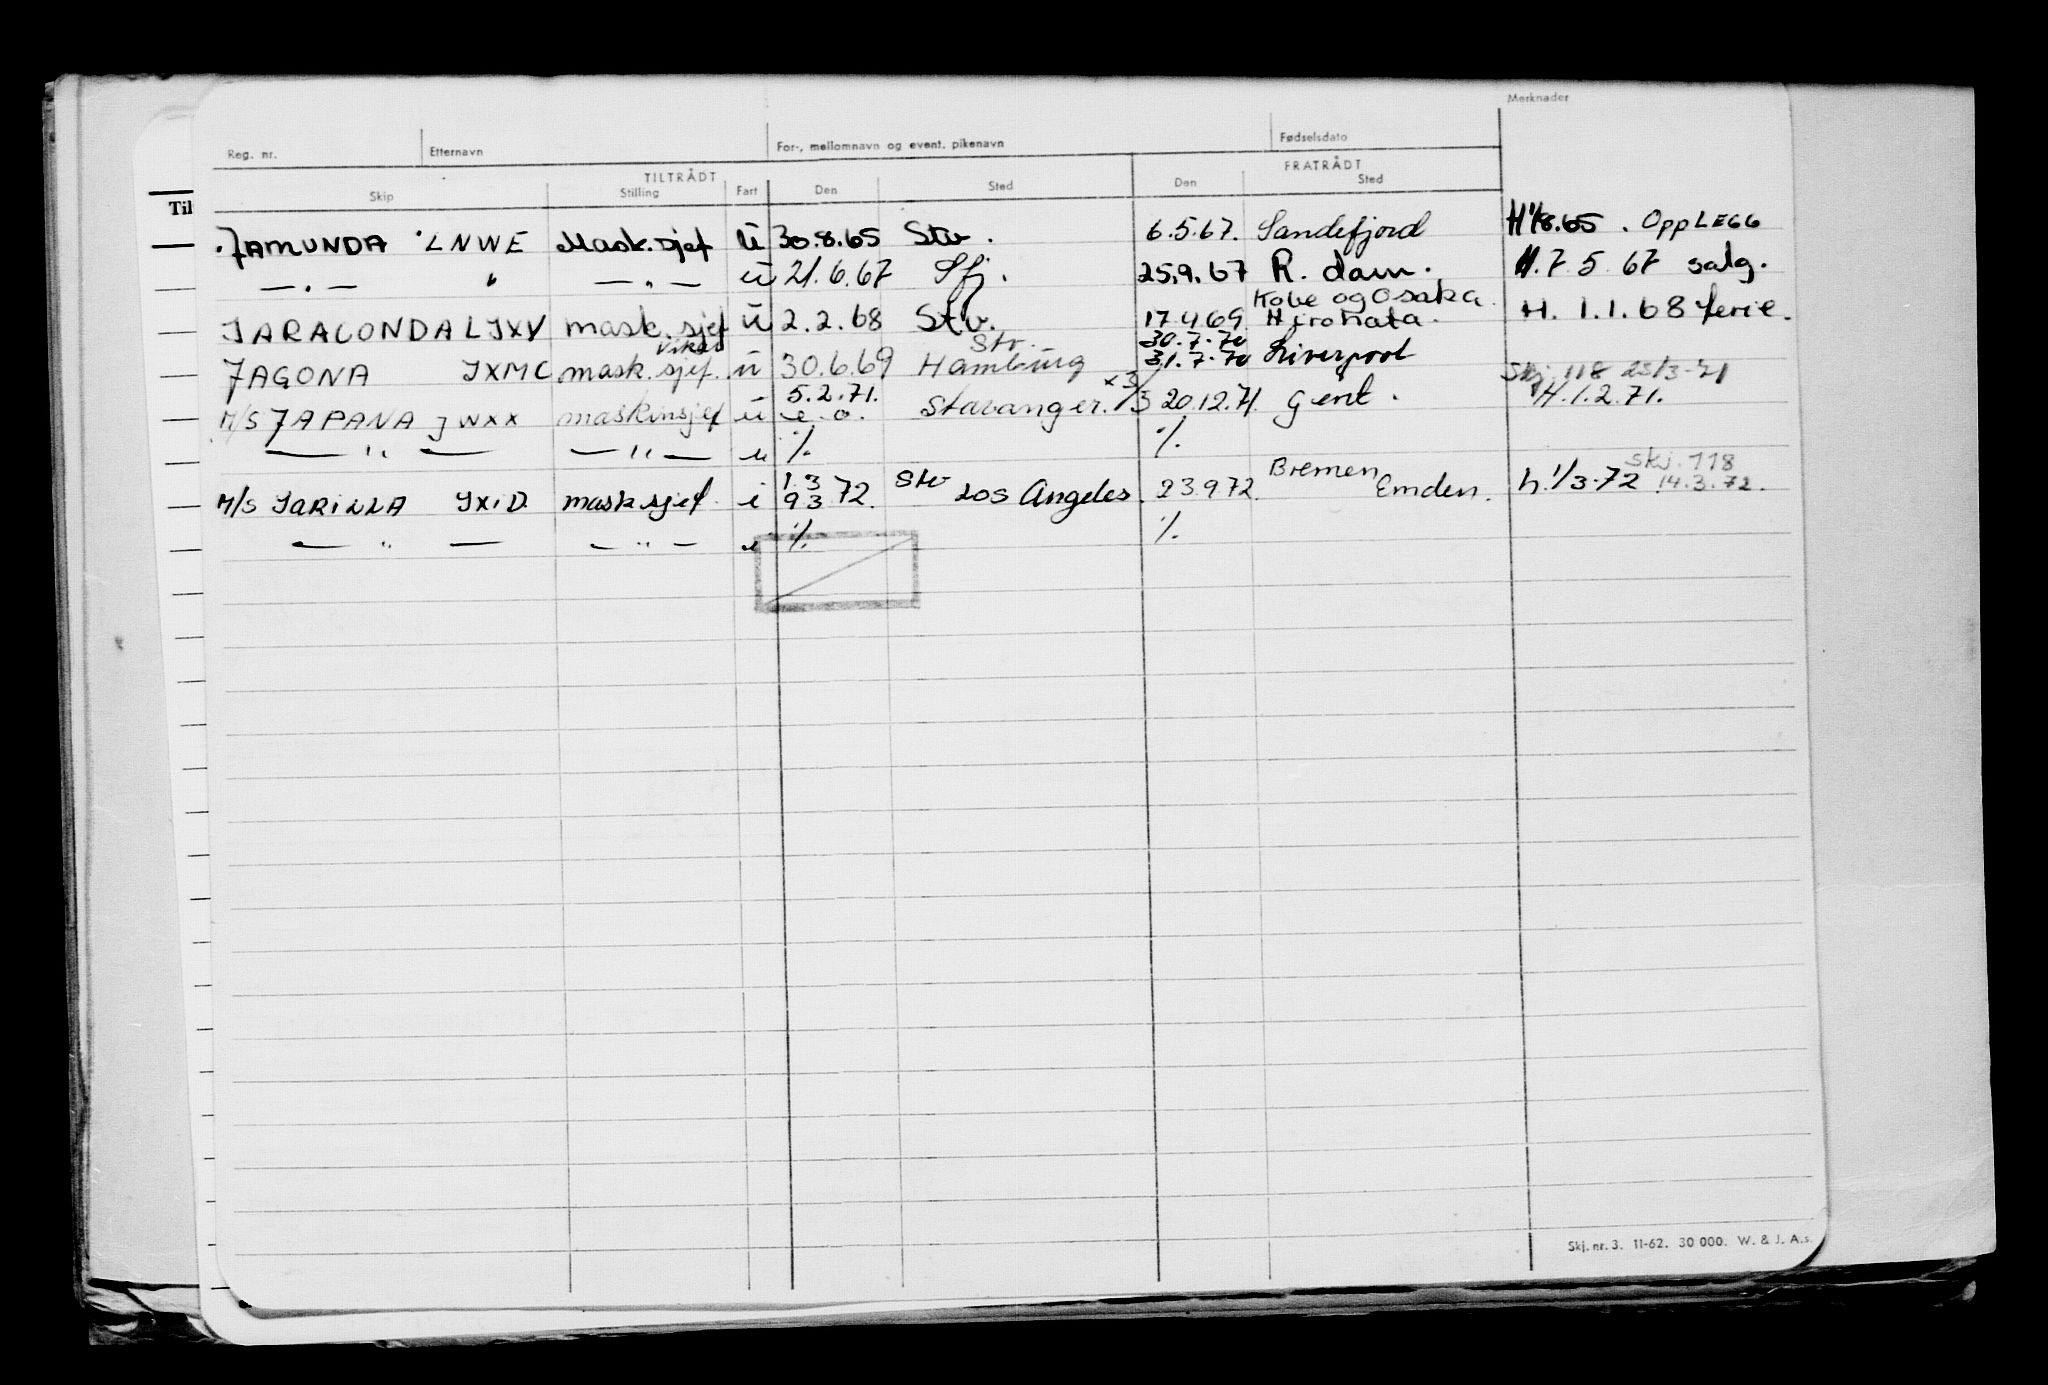 Merknader
Reg. nr. Etternavn For-, mellomnavn og event. pikenavn Fødselsdato
TILTRÅDT FRATRÅDT
Skip Stilling Fart Den Sted Den Sted
Til
JAMUNDA LNWE Mask.sjef ū 30.8.65 Stv. 6.5.67. Sandefjord H1/8.65. OppLEGG
— " — " — " — ū 21.6.67 Sfj. 25.9.67 R. dam. H.7.5.67 salg.
Kobe og Osaka.
JARACONDA LJXV mask.sjef ū 2.2.68 Stv. 17.4.69 Hirohata. H. 1.1.68 ferie.
vikar Stv. 30.7.70
JAGONA JXMC mask.sjef. ū 30.6.69 Hamburg 31.7.70 Liverpool Skj. 118 25/3-71
5.2.71. x 3/3
M/S JAPANA JWXX maskinsjef ū e.o. Stavanger. 20.12.71. Gent. H.1.2.71.
— " — — " — u %. %.
1.3 Stv Bremen Skj. 118
M/S JARILLA JXID mask sjef. i 9 3 72. Los Angeles. 23.9.72. Emden. h.1/3-72 14.3.72.
— " — — " — u %. %.
Skj. nr. 3. 11-62. 30 000. W. & J. A.s.